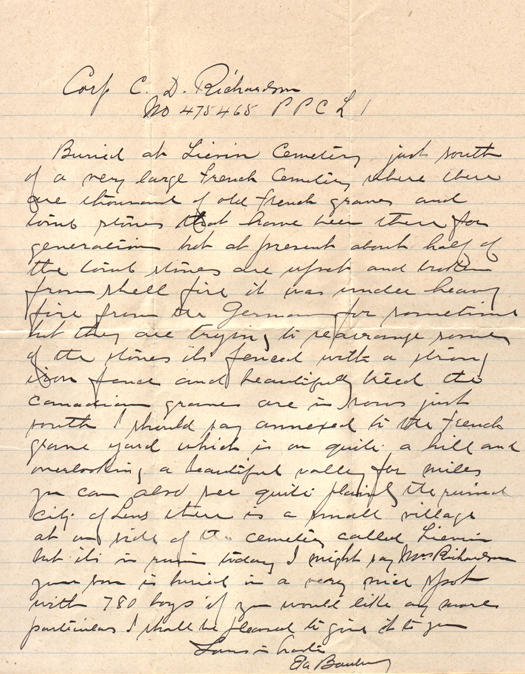 Corp C. D. Richardson
No 475465 P P C L I
Buried at Lievin Cemetery just south
of a very large French Cemetery where there
are thousand of old French graves and
tomb stones that have been there for
generation but at present about half of
the tomb stones are upset and broken
from shell fire it was under heavy
fire from the German for sometime
but they are trying to rearrange some
of the stones its fenced with a strong
iron fence and beautifully treed the
Canadian graves are in rows just
south I should say annexed to the French
grave yard which is on quite a hill and
overlooking a beautiful valley for miles
you can also see quite plainly the ruined
city of Lens there is a small village
at one side of the cemetery called Lievin
but its in ruin today I might say Mrs Richardson
your son is buried in a very nice spot
with 780 boys if you would like any more
particulars I shall be pleased to give it to you
Yours in